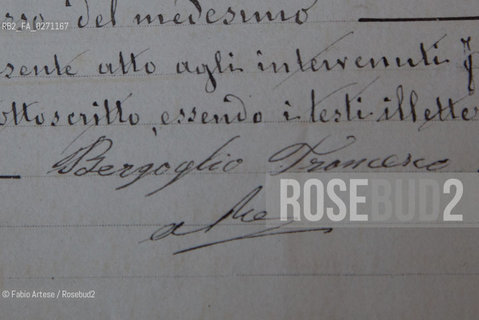 del medesimo
RB2_FA_0271167
sente atto agli intervenuti
ottoscritto, essendo i testi illetter
Bergoglio Francesco
ROSEBUD2
© Fabio Artese / Rosebud2